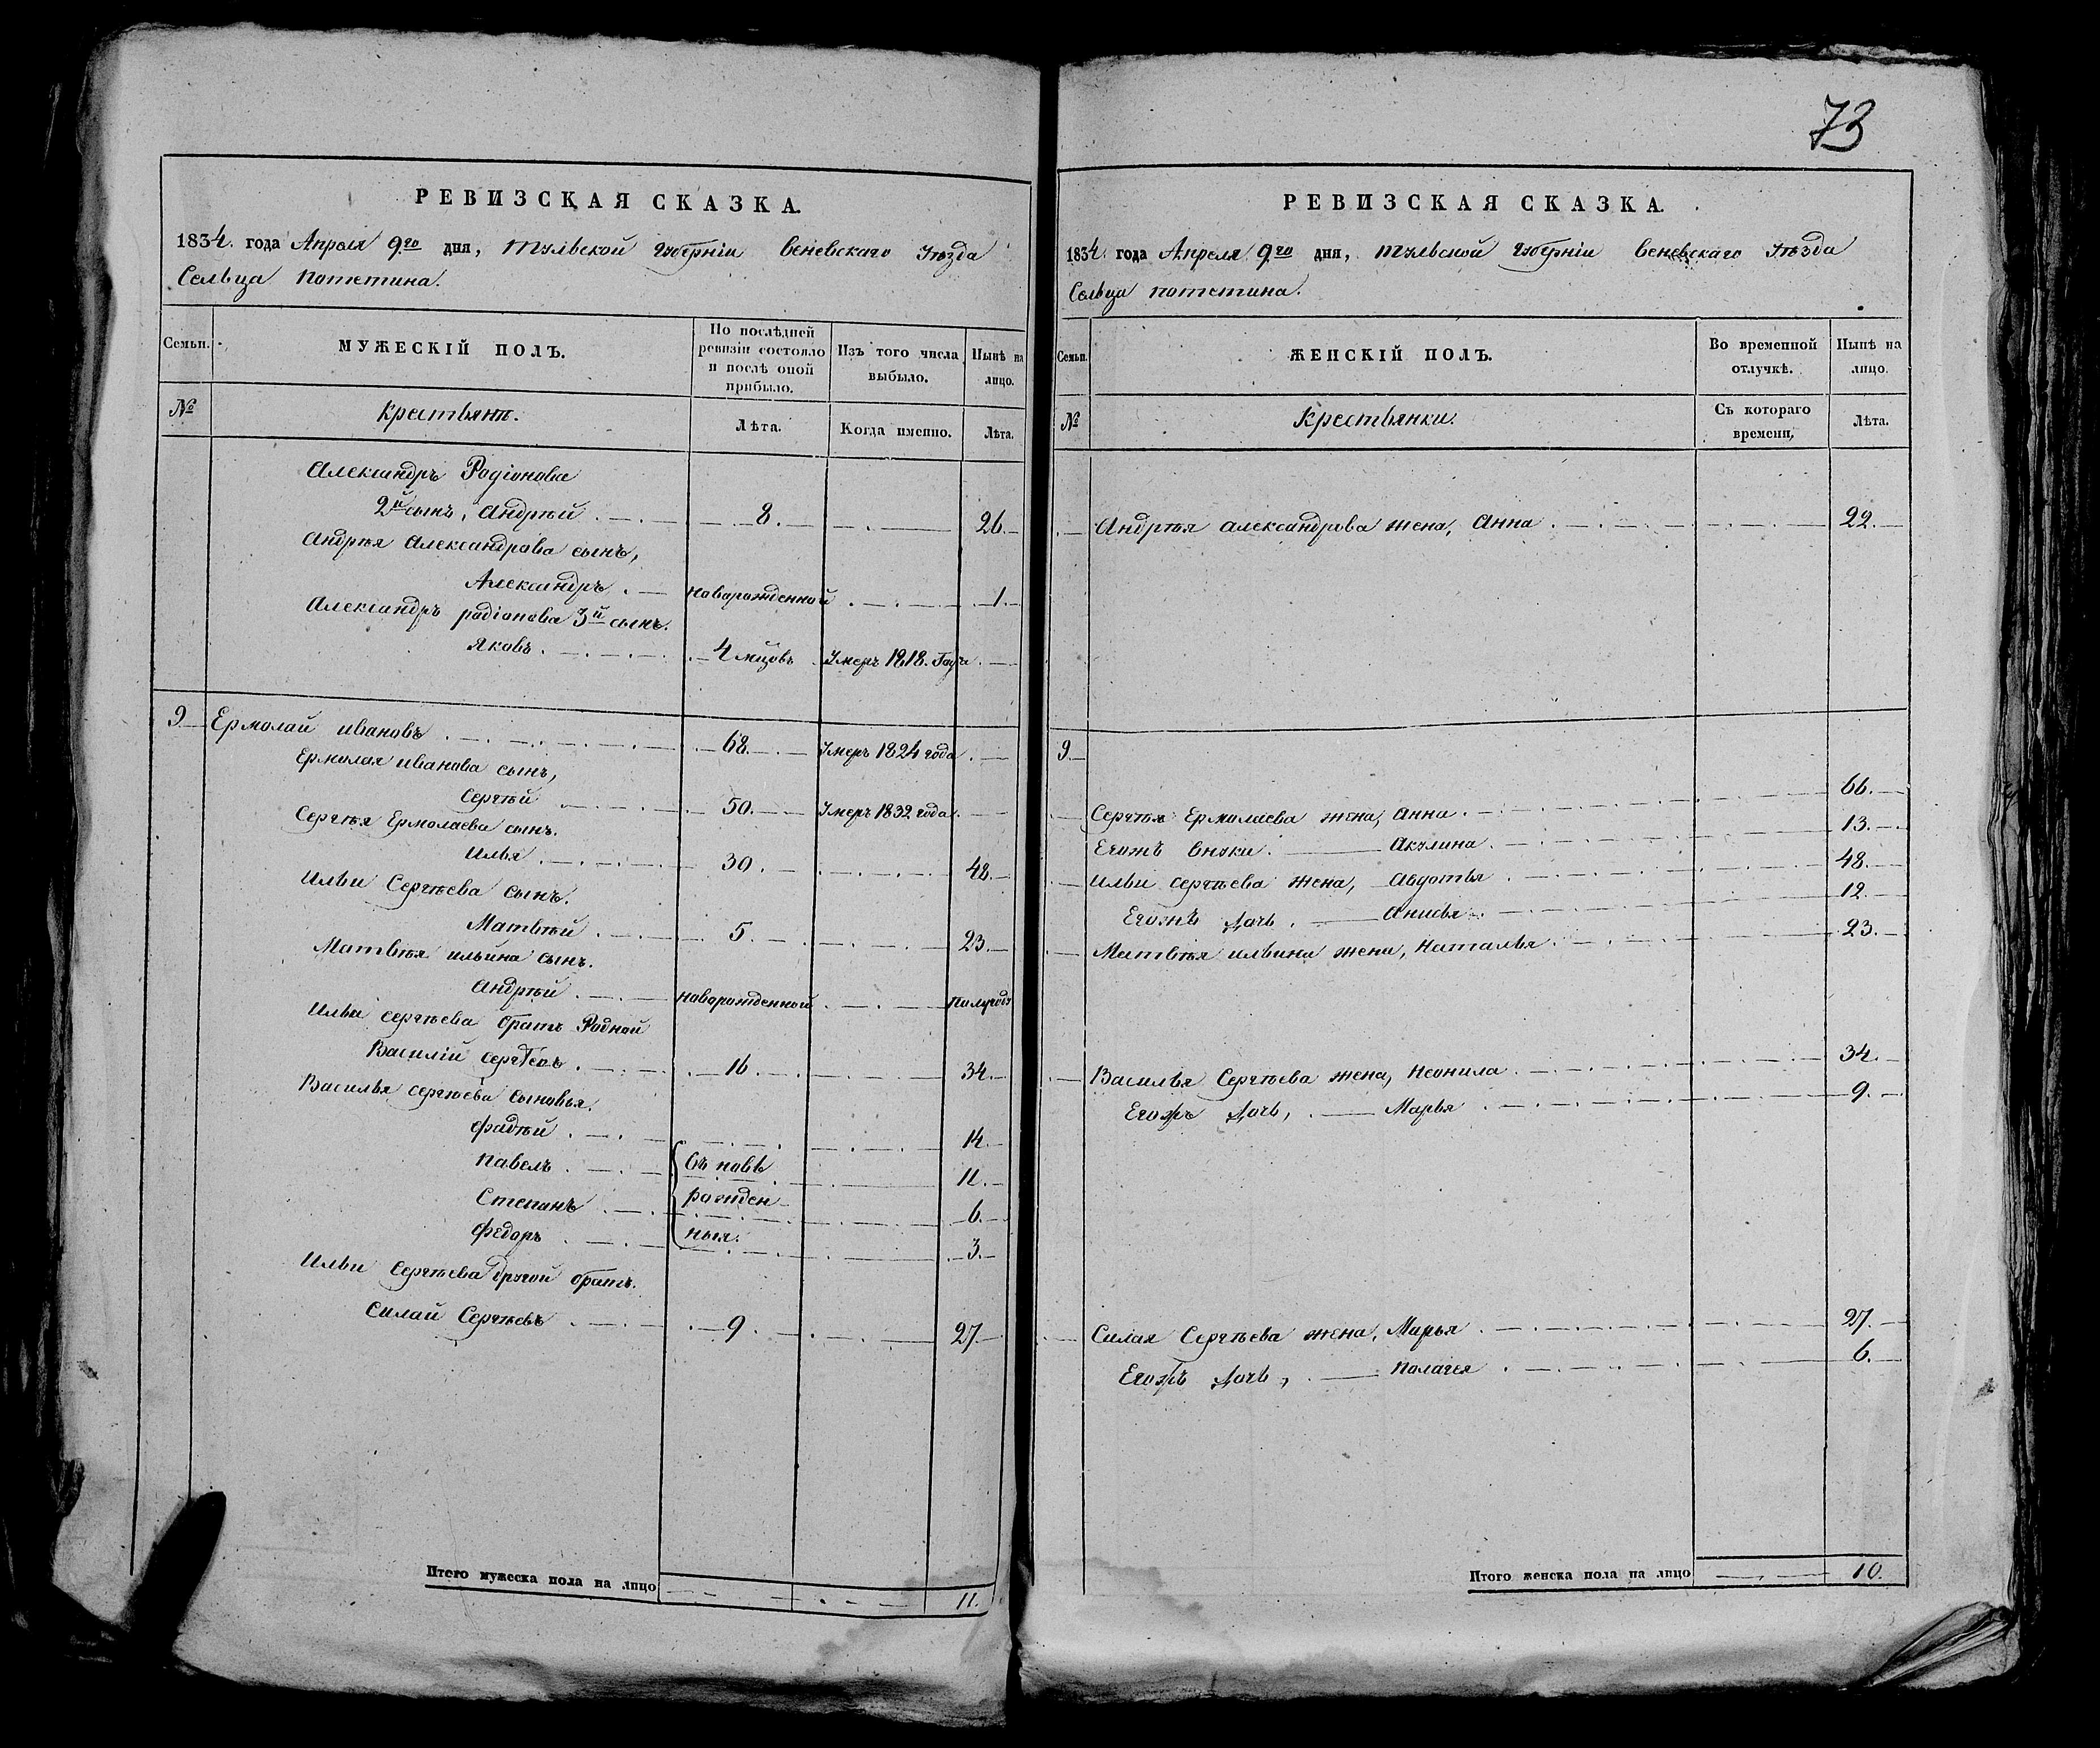 РЕВИЗСКАЯ СКАЗКА.
1834. года Апреля 9го дня, тульской губерніи веневскаго Уѣзда
Сельца потетина.
Семьи.
МУЖЕСКІЙ ПОЛЪ.
По послѣдней ревизіи состояло и послѣ оной прибыло.
Изъ того числа выбыло.
Нынѣ на лицо.
№
крестьянъ.
Лѣта.
Когда именно.
Лѣта.
Александръ Родіонова
2й сынъ, Андрѣй 8. 26.
Андрѣя Александрова сынъ,
Александръ новорожденной 1.
Александръ родіонова 3й сынъ.
Яковъ 4 мцовъ Умеръ 1818. Году
9 Ермолай ивановъ 68. Умеръ 1824 года
Ермолая иванова сынъ,
Сергѣй 50. Умеръ 1832 года
Сергѣя Ермолаева сынъ.
Илья 30. 48.
Ильи Сергѣева сынъ.
Матвѣй 5. 23.
Матвѣя ильина сынъ.
Андрѣй новорожденной полугоду
Ильи сергѣева братъ Родной
Василій сергѣевъ 16. 34.
Василья сергѣева сыновья.
Фадѣй 14.
Павелъ въ новѣ 11.
Степанъ рожден 6.
Федоръ ныя. 3.
Ильи Сергѣева другой братъ.
Силай Сергѣевъ 9. 27.
Итого мужеска пола на лицо 11.
73
РЕВИЗСКАЯ СКАЗКА.
1834. года Апреля 9го дня, тульской губерніи веневскаго Уѣзда
Сельца потетина.
Семьи.
ЖЕНСКІЙ ПОЛЪ.
Во временной отлучкѣ.
Нынѣ на лицо.
№
Крестьянки.
Съ котораго времени,
Лѣта.
Андрѣя александрова жена, Анна 22.
9
Сергѣя Ермолаева жена, Анна 66.
Егожъ внуки. Акулина 13.
Ильи сергѣева жена, Авдотья 48.
Егожъ дочь. Анисья 12.
Матвѣя ильина жена, Наталья 23.
Василья Сергѣева жена, Неонила 34.
Егожъ дочь, Марья 9.
Силая Сергѣева жена, Марья 27.
Егожъ дочь, полагея 6.
Итого женска пола на лицо 10.